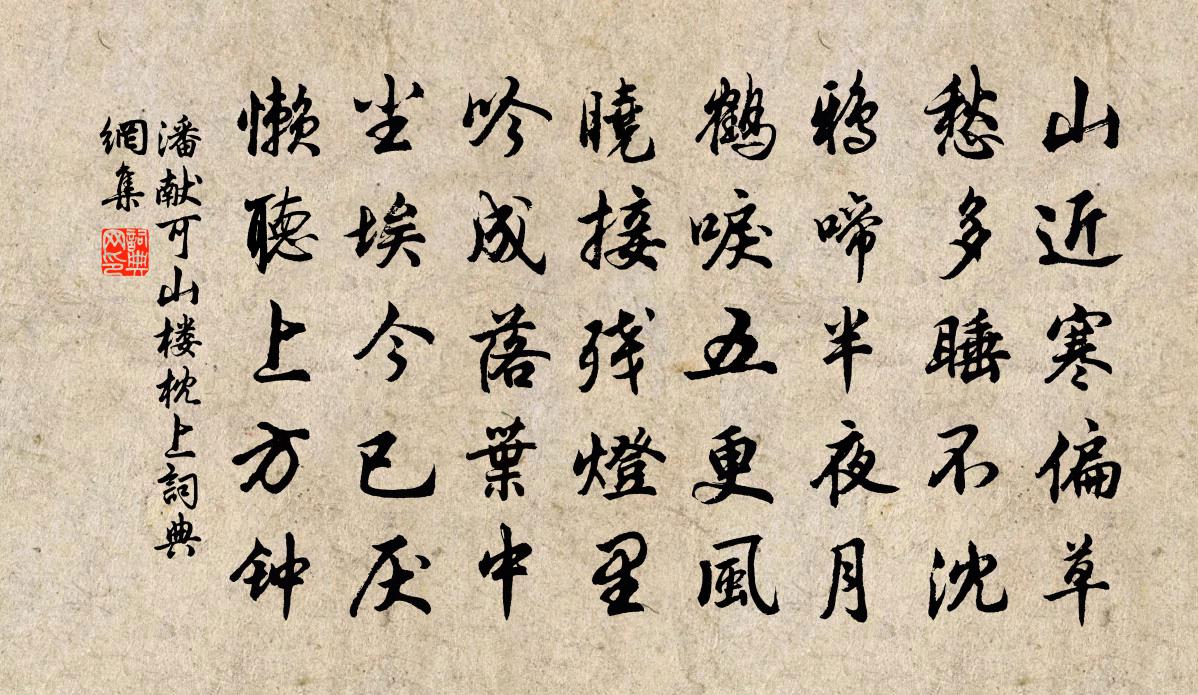 山近寒偏草
愁多睡不沈
鸦啼半夜月
鶴唳五更風
曉接残燈里
吟成落葉中
尘埃今已厌
懒聽上方钟
潘献可山楼枕上詞典
網集
詞典
网印